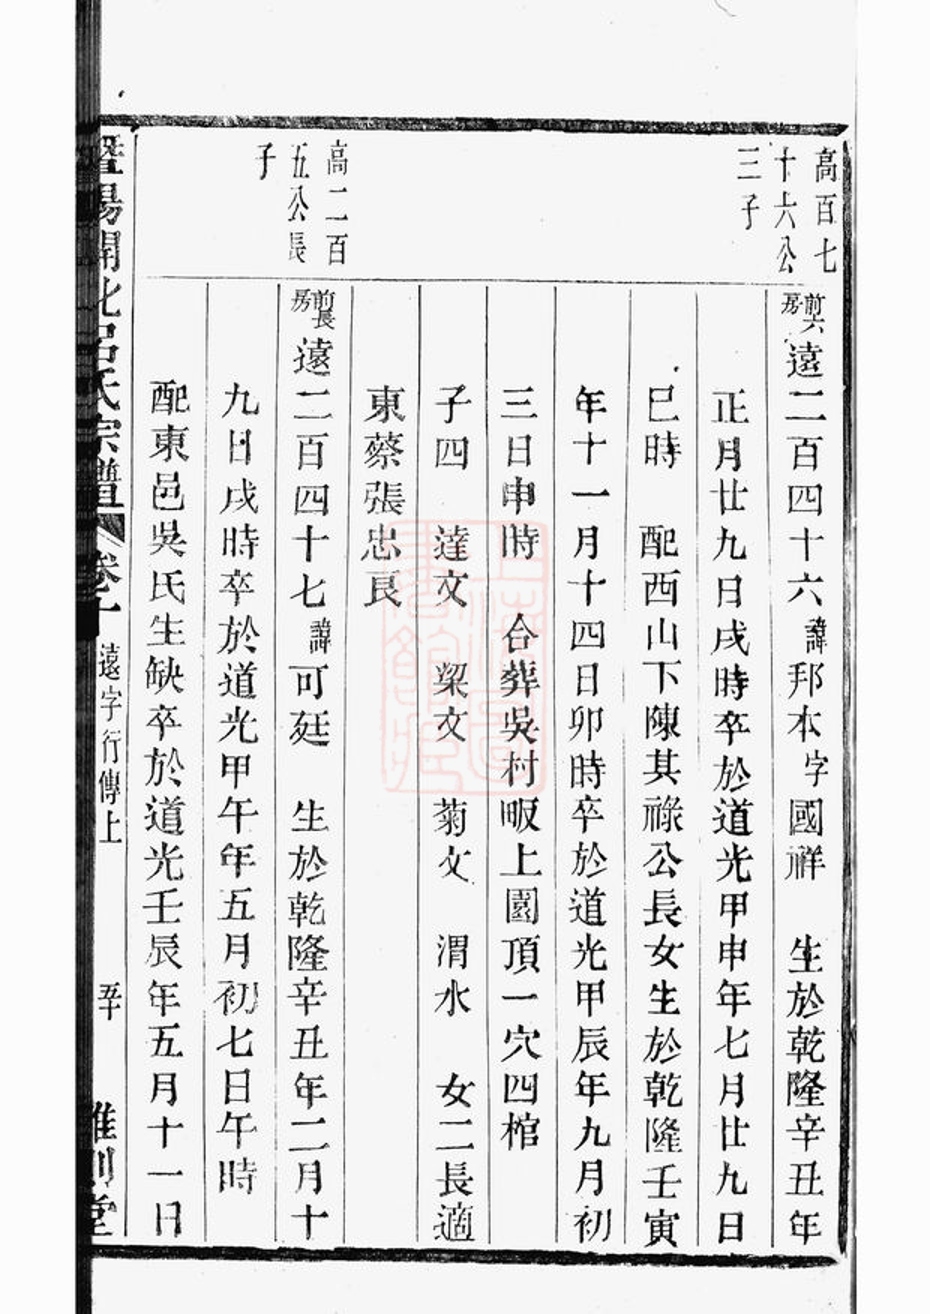 高百七
十六公
三子
前六房遠二百四十六諱邦本字國祥　生於乾隆辛丑年
正月廿九日戌時卒於道光甲申年七月廿九日
巳時　配西山下陳其祿公長女生於乾隆壬寅
年十一月十四日卯時卒於道光甲辰年九月初
三日申時　合葬吳村畈上園頂一穴四棺
子四　達文　梁文　菊文　渭水　女二長適
東蔡張忠良
高二百
五公長
子
前長房遠二百四十七諱可廷　生於乾隆辛丑年二月十
九日戌時卒於道光甲午年五月初七日午時
配東邑吳氏生缺卒於道光壬辰年五月十一日
暨陽開化呂氏宗譜　卷十　遠字行傳上　五十　惟則堂